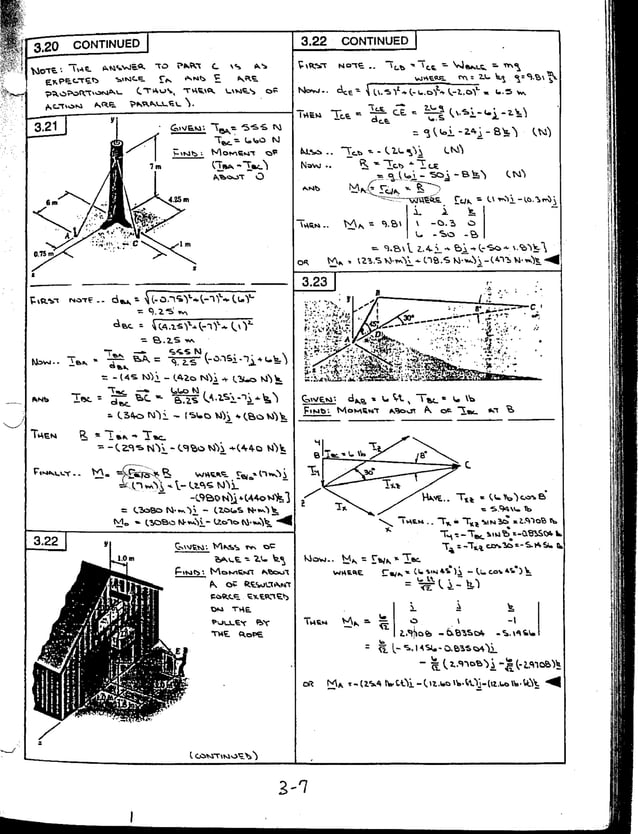 3.20 CONTINUED
NOTE: THE ANSWER TO PART C IS AS
EXPECTED SINCE rA AND E ARE
PROPORTIONAL (THUS, THEIR LINES OF
ACTION ARE PARALLEL).
3.21
GIVEN: TBA = 555 N
TBC = 660 N
FIND: MOMENT OF
(TBA - TBC)
ABOUT O
y
7 m
6 m
4.25 m
A
C
1 m
0.75 m
z
x
FIRST NOTE.. dBA = √(-0.75)²+(-7)²+(6)²
= 9.25 m
dBC = √(4.25)²+(-7)²+(1)²
= 8.25 m
NOW.. TBA = TBA/dBA BA = 555 N/9.25 (-0.75i-7j+6k)
= -(45 N)i - (420 N)j + (360 N)k
AND TBC = TBC/dBC BC = 660 N/8.25 (4.25i-7j+k)
= (340 N)i - (560 N)j + (80 N)k
THEN R = TBA + TBC
= -(295 N)i - (980 N)j + (440 N)k
FINALLY.. Mo = rB/O × R WHERE rB/O = (7m)j
= (7m)j × [-(295 N)i
-(980 N)j+(440 N)k]
= (3080 N·m)i - (2065 N·m)k
Mo = (3080 N·m)i - (2070 N·m)k
3.22
GIVEN: MASS m OF
BALE = 26 kg
FIND: MOMENT ABOUT
A OF RESULTANT
FORCE EXERTED
ON THE
PULLEY BY
THE ROPE
y
1.0 m
E
z
(CONTINUED)
3.22 CONTINUED
FIRST NOTE.. TCD = TCE = WBALE = mg
WHERE m = 26 kg g = 9.81 m/s²
NOW.. dCE = √(1.5)²+(-6.0)²+(-2.0)² = 6.5 m
THEN TCE = TCE/dCE CE = 26g/6.5 (1.5i-6j-2k)
= g(6i-24j-8k) (N)
ALSO.. TCD = -(26g)j (N)
NOW.. R = TCD + TCE
= g(6i - 50j - 8k) (N)
AND MA = rC/A × R
WHERE rC/A = (1 m)i - (0.3m)j
i j k
THEN.. MA = 9.81 1 -0.3 0
6 -50 -8
= 9.81[2.4i + 8j + (-50+1.8)k]
OR MA = (23.5 N·m)i + (78.5 N·m)j - (473 N·m)k
3.23
y
B
C
8°
45°
30°
A
D
x
GIVEN: dAB = 6 ft, TBC = 6 lb
FIND: MOMENT ABOUT A OF TBC AT B
y
B TBC = 6 lb
Tz
8°
C
Ty
30°
Txz
z
Tx
x
HAVE.. Txz = (6 lb) cos 8°
= 5.9416 lb
THEN.. Tx = Txz SIN 30° = 2.9708 lb
Ty = -TBC SIN 8° = -0.83504 lb
Tz = -Txz COS 30° = -5.1456 lb
NOW.. MA = rB/A × TBC
WHERE rB/A = (6 SIN 45°)j - (6 COS 45°)k
= 6 ft/√2 (j - k)
i j k
THEN MA = 6/√2 0 1 -1
2.9708 -0.83504 -5.1456
= 6/√2 (-5.1456-0.83504)i
- 6/√2 (2.9708)j - 6/√2 (2.9708)k
OR MA = -(25.4 lb·ft)i - (12.60 lb·ft)j - (12.60 lb·ft)k
3-7